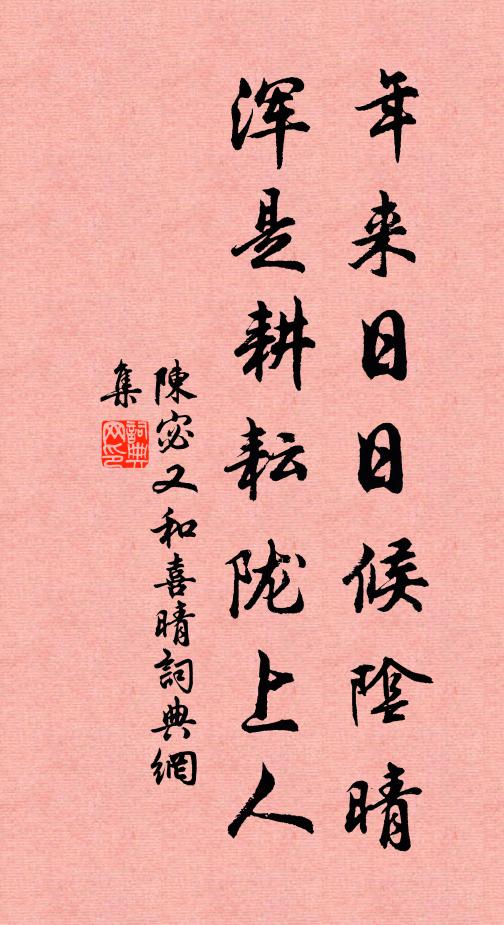 年来日日候陰晴
浑是耕耘陇上人
陳宓又和喜晴詞典網
集
詞典网印